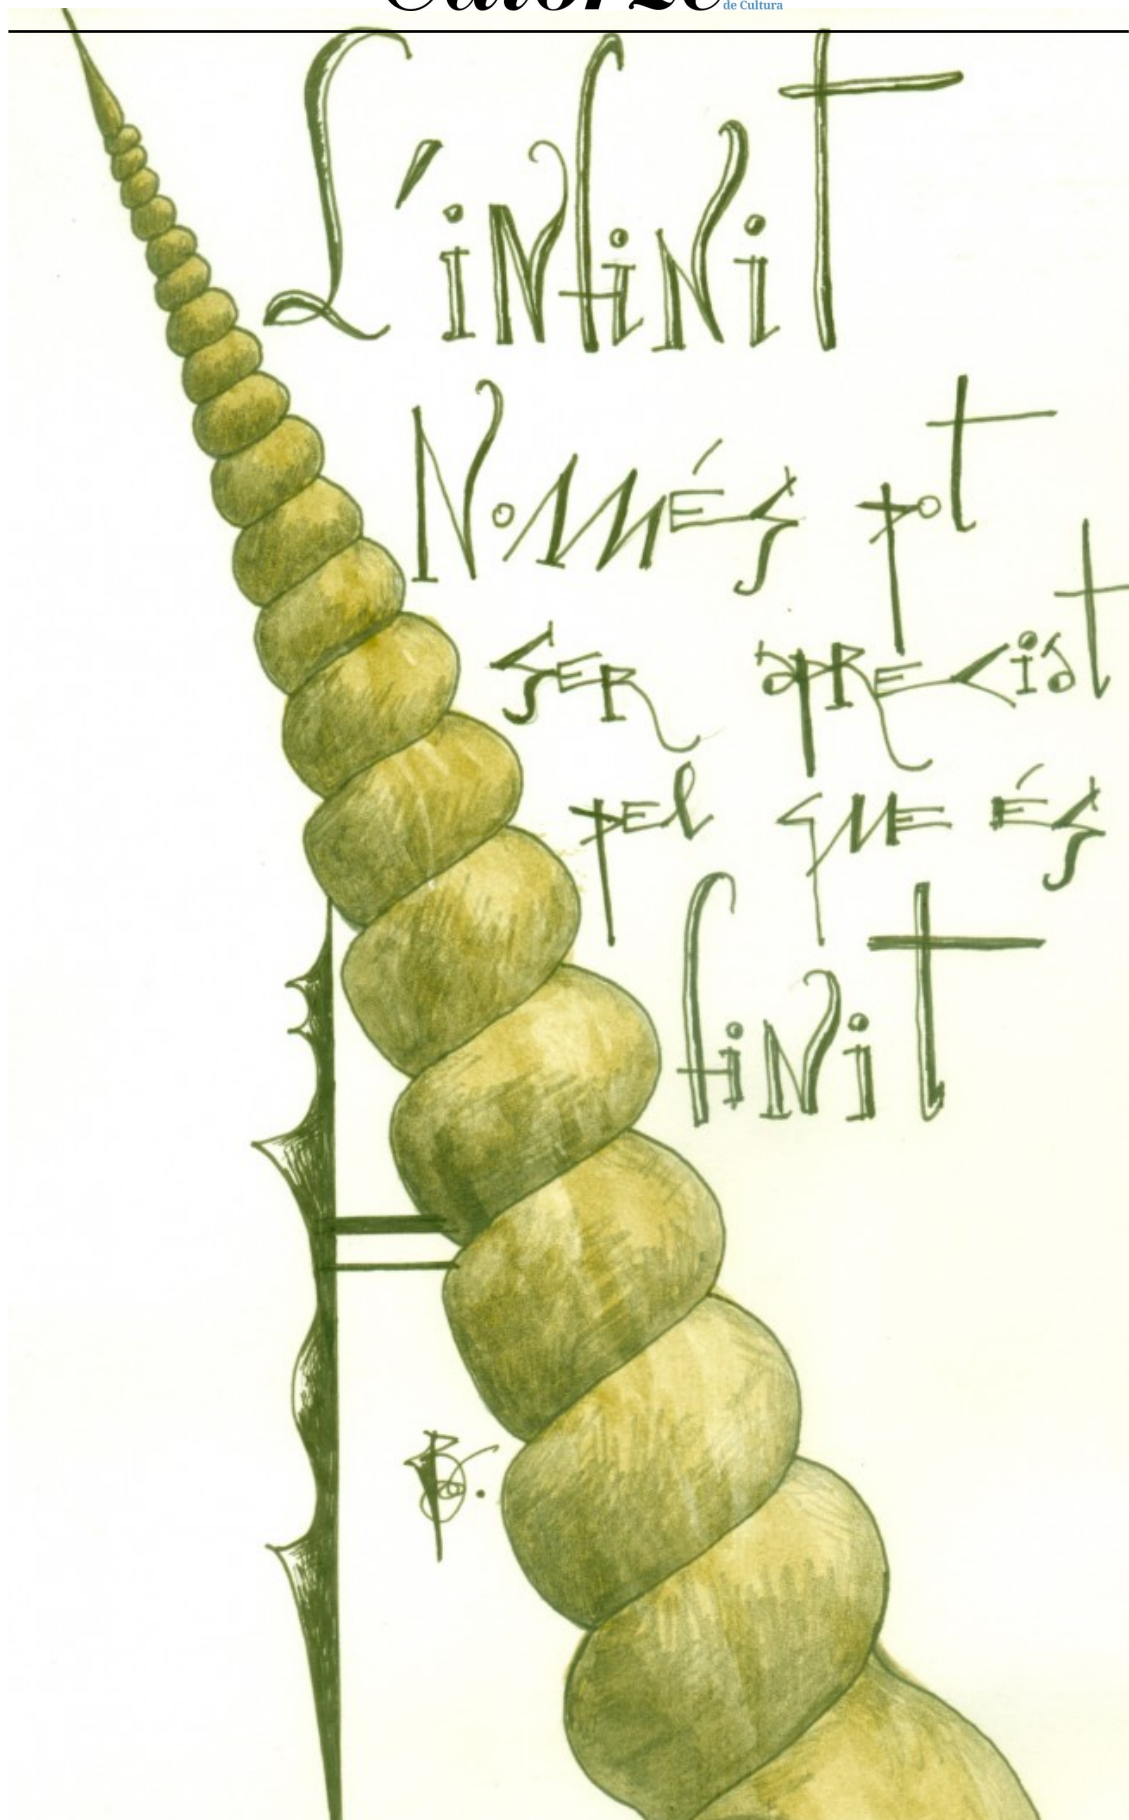 de Cultura
L'infinit
Només pot
ser apreciat
pel que és
finit